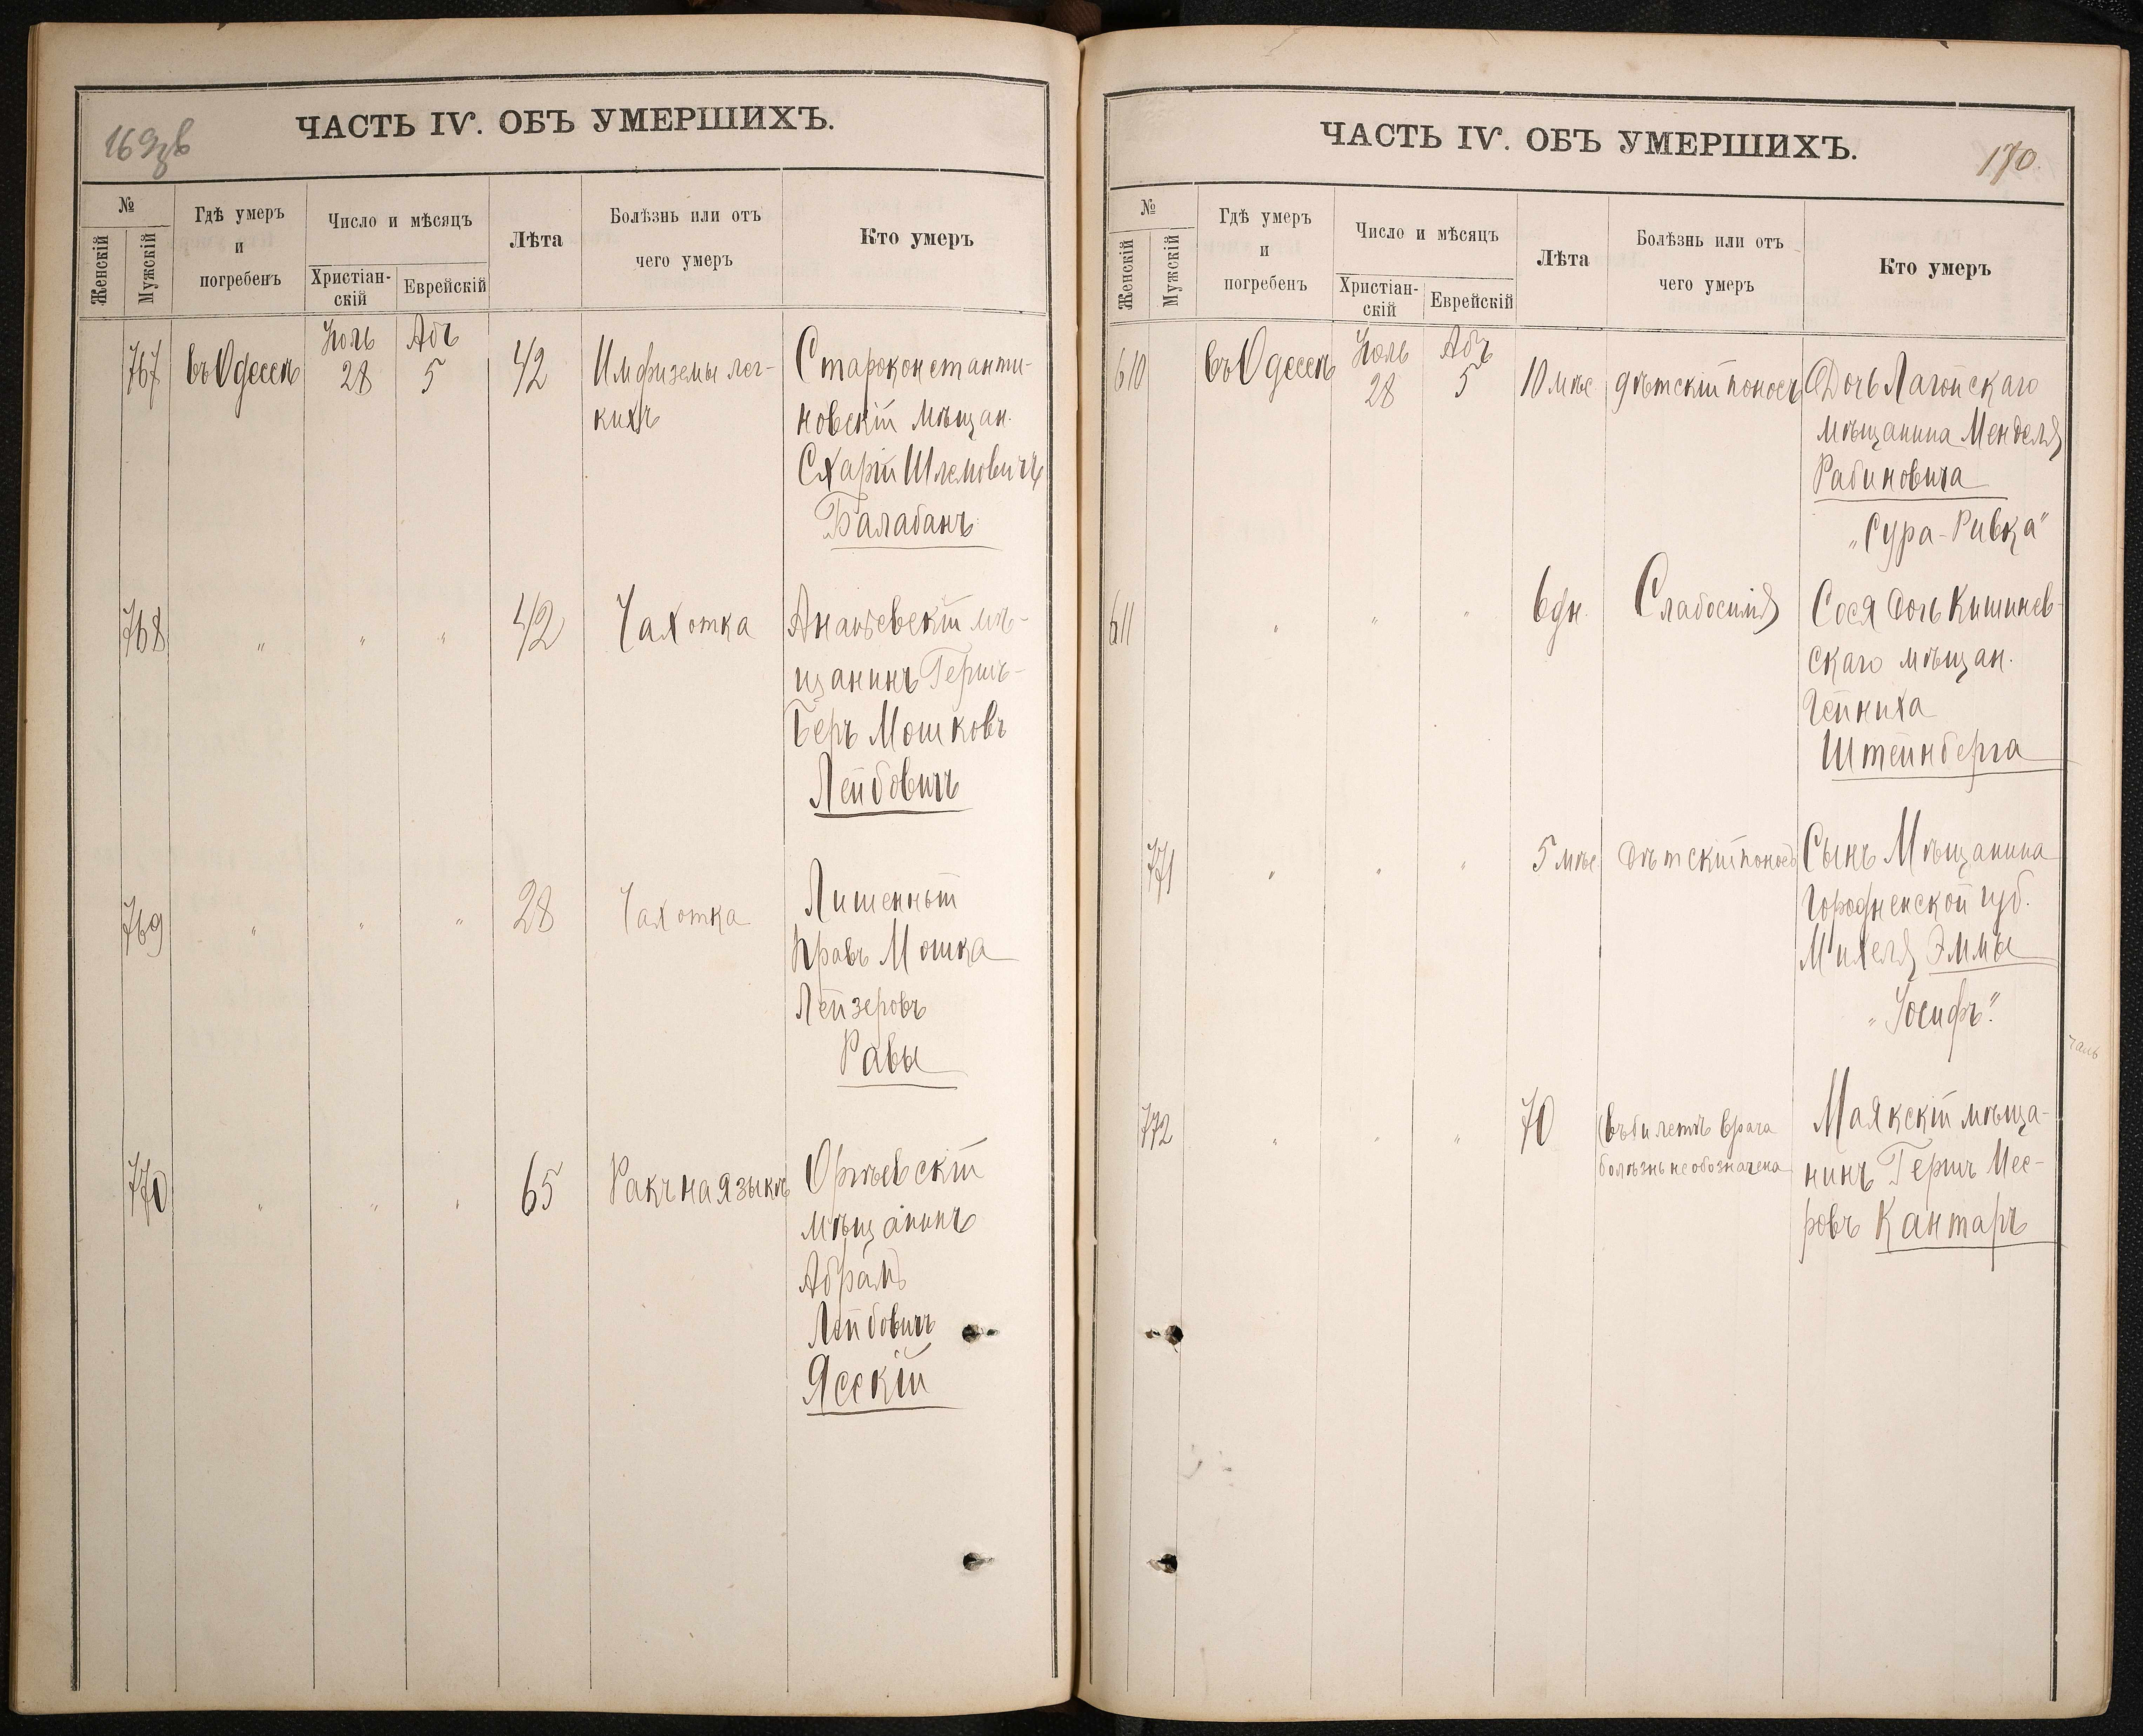 ЧАСТЬ IV. ОБЪ УМЕРШИХЪ.
№
Женскій
Мужскій
Гдѣ умеръ
и
погребенъ
Число и мѣсяцъ
Христіан-
скій
Еврейскій
Лѣта
Болѣзнь или отъ
чего умеръ
Кто умеръ
767 въ Одессѣ Іюль 28 Абъ 5 42 Имфиземы лег- Староконстанти-
кихъ новскій мѣщан.
Схарій Шлемовичъ
Балабанъ
768 " " " 42 Чахотка Ананьевскій мѣ-
щанинъ Гершъ-
Беръ Мошковъ
Лейбовичъ
769 " " " 28 Чахотка Лишенный
правъ Мошка
Лейзеровъ
Равы
770 " " " 65 Ракъ на языкѣ Оргѣевскій
мѣщанинъ
Абрамъ
Лейбовичъ
Ясскій
ЧАСТЬ IV. ОБЪ УМЕРШИХЪ.
170.
№
Женскій
Мужскій
Гдѣ умеръ
и
погребенъ
Число и мѣсяцъ
Христіан-
скій
Еврейскій
Лѣта
Болѣзнь или отъ
чего умеръ
Кто умеръ
610 въ Одессѣ Іюль 28 Абъ 5 10 мѣс дѣтскій поносъ Дочь Лагойскаго
мѣщанина Менделя
Рабиновича
„Сура-Ривка"
611 " " " 6 дн. Слабосилія Сося дочь Кишинев-
скаго мѣщан.
Гейниха
Штейнберга
771 " " " 5 мѣс Дѣтскій поносъ Сынъ Мѣщанина
Городненской губ.
Михеля Эммы
„Іосифъ".
772 " " " 70 въ билетѣ врача Маякскій мѣща-
болѣзнь не обозначена нинъ Гершъ Мее-
ровъ Кантаръ